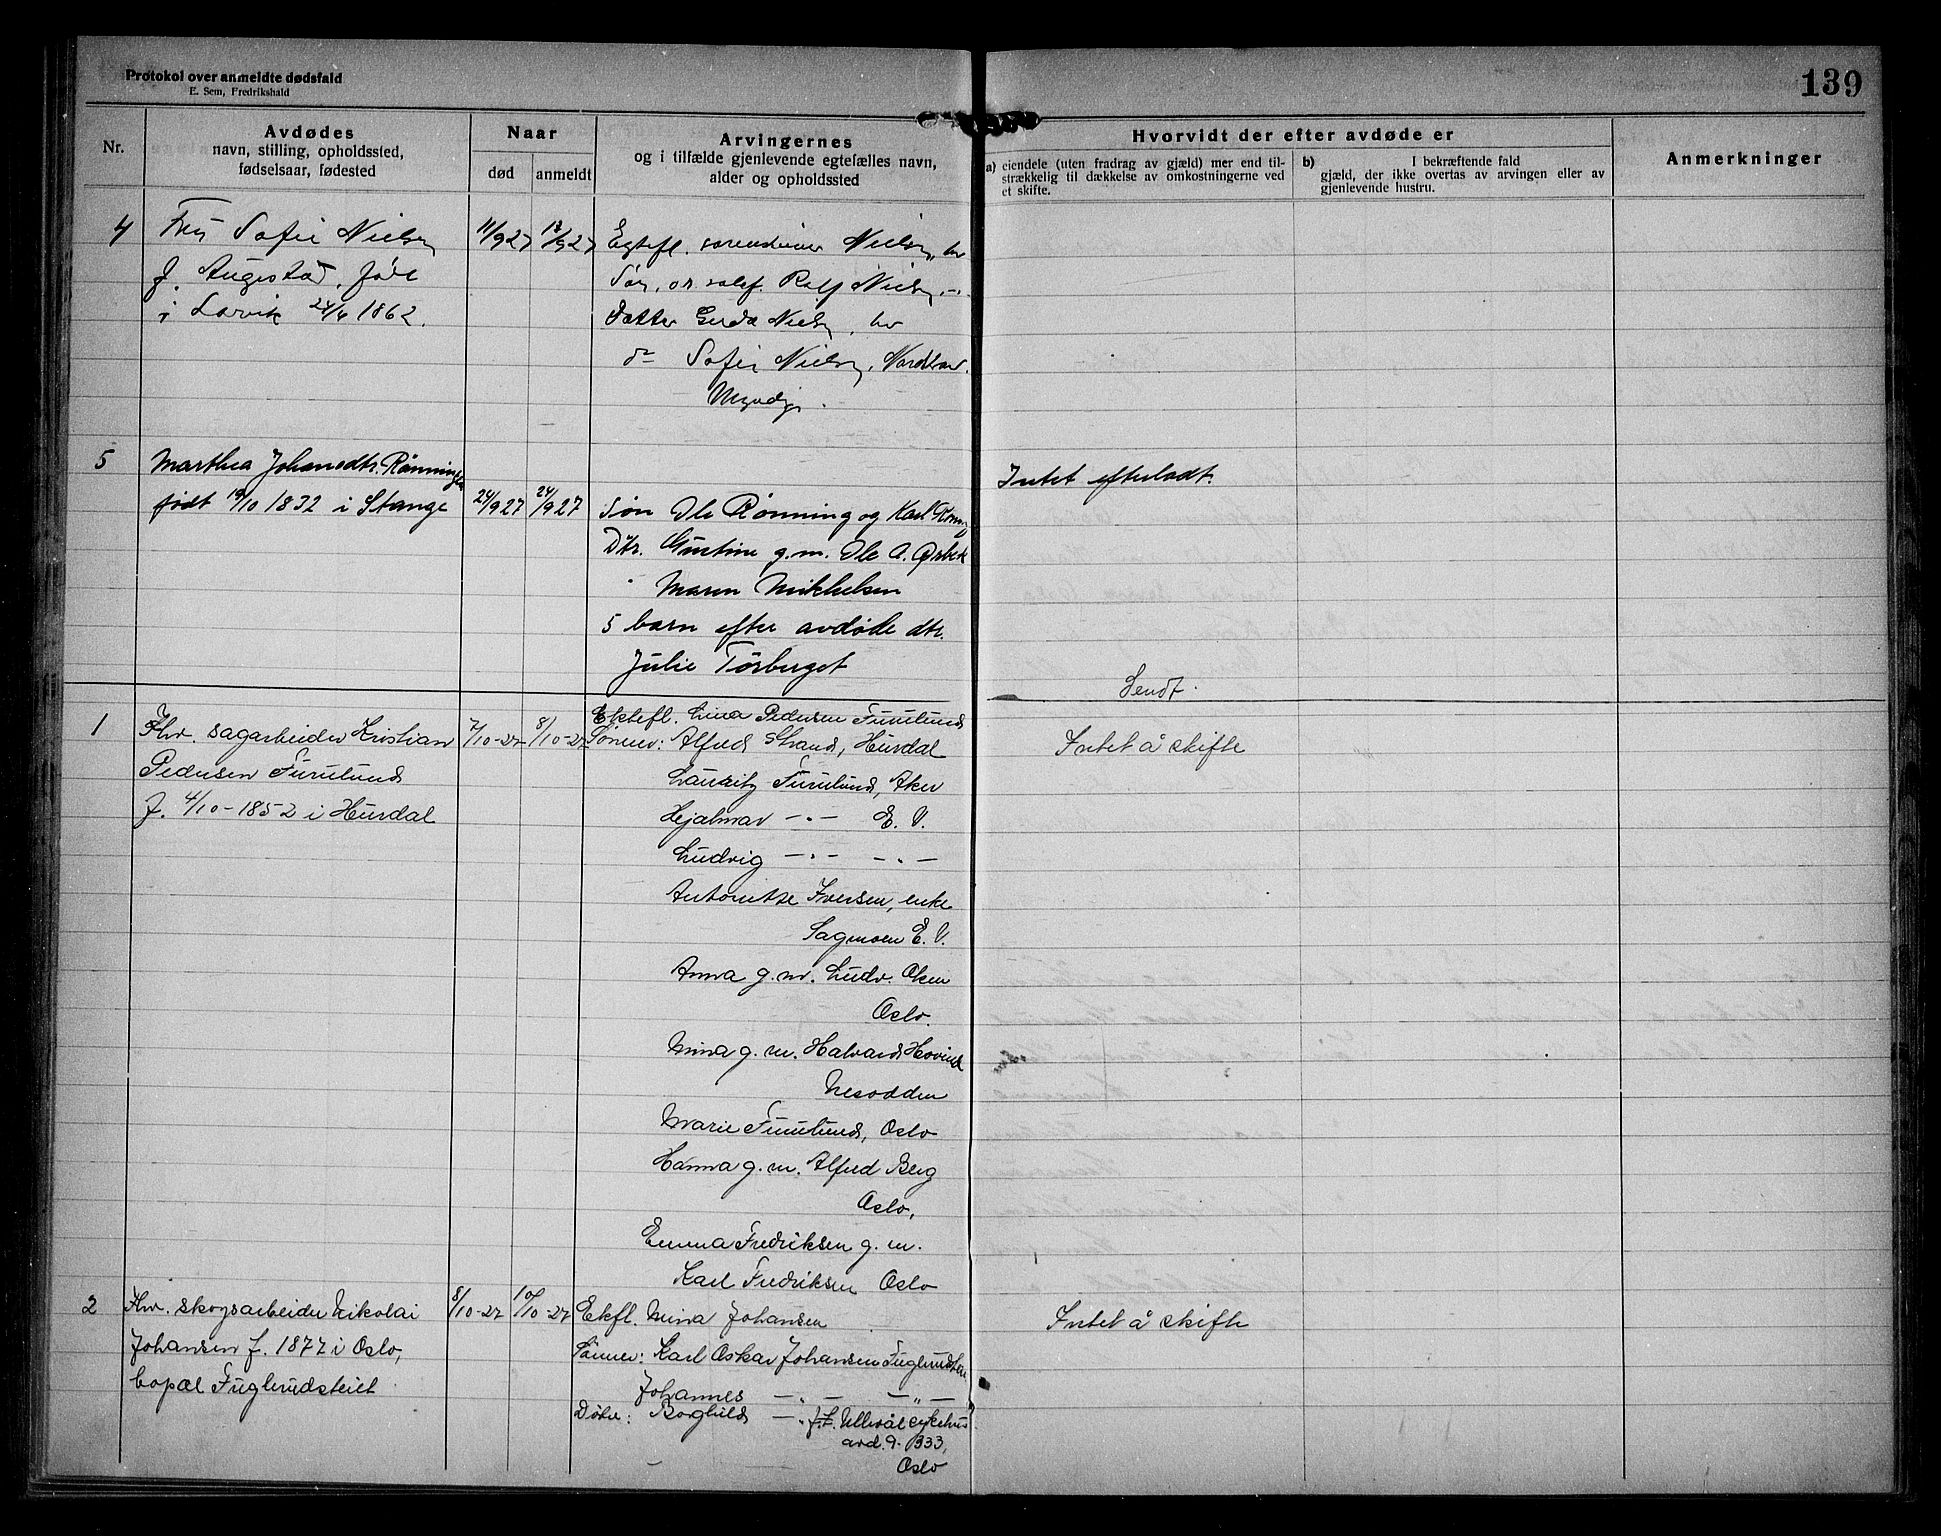 Protokol over anmeldte dødsfald
E. Sem, Fredrikshald
139
Nr.
Avdødes
navn, stilling, opholdssted,
fødselsaar, fødested
Naar
død
anmeldt
Arvingernes
og i tilfælde gjenlevende egtefælles navn,
alder og opholdssted
Hvorvidt der efter avdøde er
a) eiendele (uten fradrag av gjæld) mer end til-
strækkelig til dækkelse av omkostningerne ved
et skifte.
b) I bekræftende fald
gjæld, der ikke overtas av arvingen eller av
gjenlevende hustru.
Anmerkninger
4
Fru Sofie Nielsen
f. Augestad, født
i Larvik 24/4 1862.
11/9 27
13/9 27
Egtefl. Nielsen, her
Søn, Rolf Nielsen
Datter Gerda Nielsen, her
do Sofie Nielsen,
Myndige.
5
Marthea Johansdtr. Rønningen
født 19/10 1832 i Stange
24/9 27
24/9 27
Søn Ole Rønning og Karl Rønning
Dtr. Gustine g.m. Ole A. Ørbek
" Maren Mikkelsen
5 barn efter avdøde dtr.
Julie Tørberget
Intet efterladt.
Sendt.
1
Fhv. sagarbeider Kristian
Pedersen Furulund
f. 4/10-1852 i Hurdal
7/10-27
8/10-27
Ektefl. Lina Pedersen Furulund
Sønner: Alfred Strand, Hurdal
Lauritz Furulund, Aker
Hjalmar -"- E. V.
Ludvig -"- -"-
Antonette Iversen, enke
Sagmoen E. V.
Anna g.m. Ludv. Olsen
Oslo.
Mina g.m. Halvard Hovind
Nesodden
Marie Furulund, Oslo
Hanna g.m. Alfred Berg
Oslo,
Emma Fredriksen g.m.
Karl Fredriksen Oslo
Intet å skifte
2
Fhv. skogsarbeider Nikolai
Johansen f. 1877 i Oslo,
bopæl Fuglerudsteiet
8/10-27
10/10-27
Ekfl. Mina Johansen
Sønner: Karl Oskar Johansen
Johannes -"- -"-
Døtre: Borghild -"- Ullevål sykehus
avd. 9. 333,
Oslo
Intet å skifte